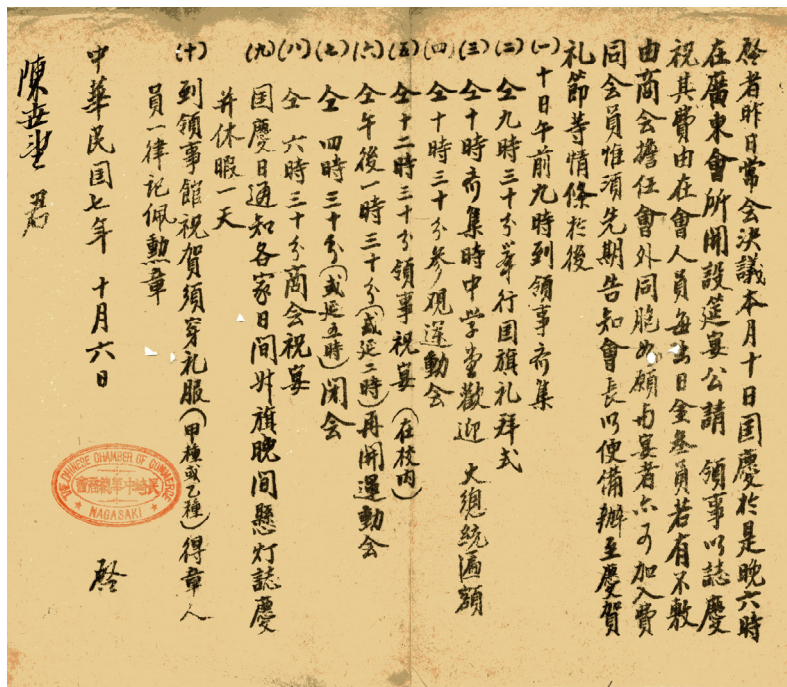 啓者昨日常会決議本月十日国慶於是晚六時
在廣東會所開設筵宴公請 領事以誌慶
祝其費由在會人員每出日金叁員若有不敷
由商会擔任會外同胞如願与宴者亦可加入費
同会員惟須先期告知會長以便備辦至慶賀
礼節等情條於後
(一)十日午前九時到領事斋集
(二)仝九時三十分举行国旗礼拜式
(三)仝十時斋集時中学堂歡迎 大總統匾額
(四)仝十時三十分参观運動会
(五)仝十二時三十分領事祝宴(在校内)
(六)仝午後一時三十分(或延二時)再開運動会
(七)仝 四時三十分(或延五時)闭会
(八)仝 六時三十分商会祝宴
(九)国慶日通知各家日间升旗晚间懸灯誌慶
并休暇一天
(十)到領事館祝賀須穿礼服(甲種或乙種)得章人
員一律記佩勲章
中華民国七年 十月六日 啓
THE CHINESE CHAMBER OF COMMERCE
長崎中華總商會
NAGASAKI
陳世望 君